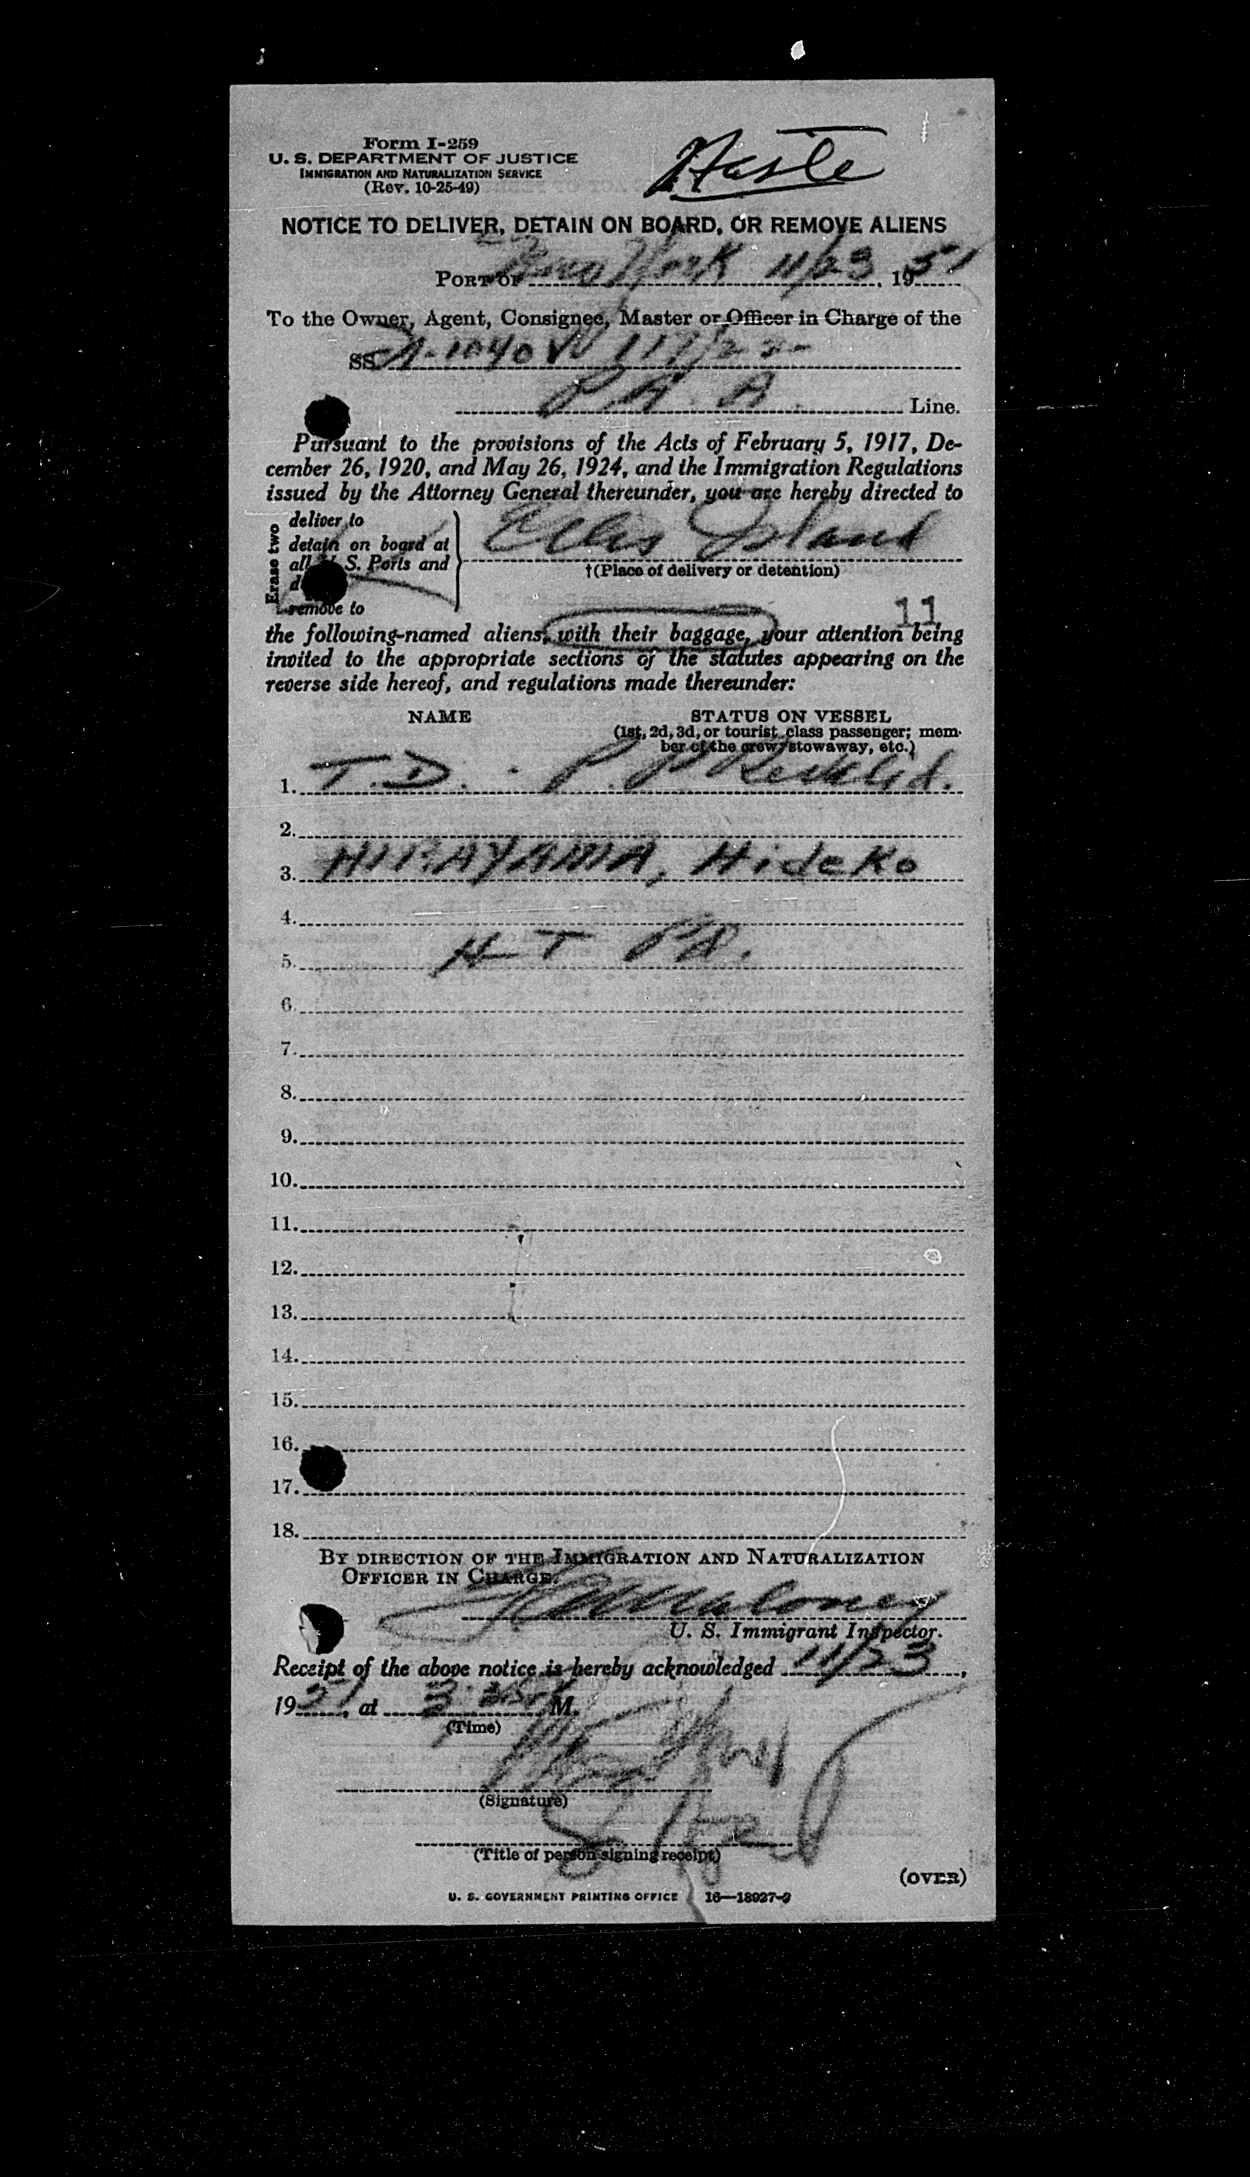 Form I-259
U. S. DEPARTMENT OF JUSTICE
IMMIGRATION AND NATURALIZATION SERVICE
(Rev. 10-25-49)
NOTICE TO DELIVER, DETAIN ON BOARD, OR REMOVE ALIENS
PORT OF New York 11/23, 1951
To the Owner, Agent, Consignee, Master or Officer in Charge of the
SS.
P. A. A. Line.
Pursuant to the provisions of the Acts of February 5, 1917, De-
cember 26, 1920, and May 26, 1924, and the Immigration Regulations
issued by the Attorney General thereunder, you are hereby directed to
Erase two
deliver to
detain on board at
all S. Ports and
remove to
Ellis Island
†(Place of delivery or detention)
11
the following-named aliens, with their baggage, your attention being
invited to the appropriate sections of the statutes appearing on the
reverse side hereof, and regulations made thereunder:
NAME
STATUS ON VESSEL
(1st, 2d, 3d, or tourist class passenger; mem-
ber of the crew, stowaway, etc.)
1. T.D.
2.
3. HIRAYAMA, Hideko
4.
5.
6.
7.
8.
9.
10.
11.
12.
13.
14.
15.
16.
17.
18.
BY DIRECTION OF THE IMMIGRATION AND NATURALIZATION
OFFICER IN CHARGE.
Maloney
U. S. Immigrant Inspector.
Receipt of the above notice is hereby acknowledged 11/23,
1951, at M.
(Time)
(Signature)
(Title of person signing receipt)
(OVER)
U. S. GOVERNMENT PRINTING OFFICE 16—18927-2